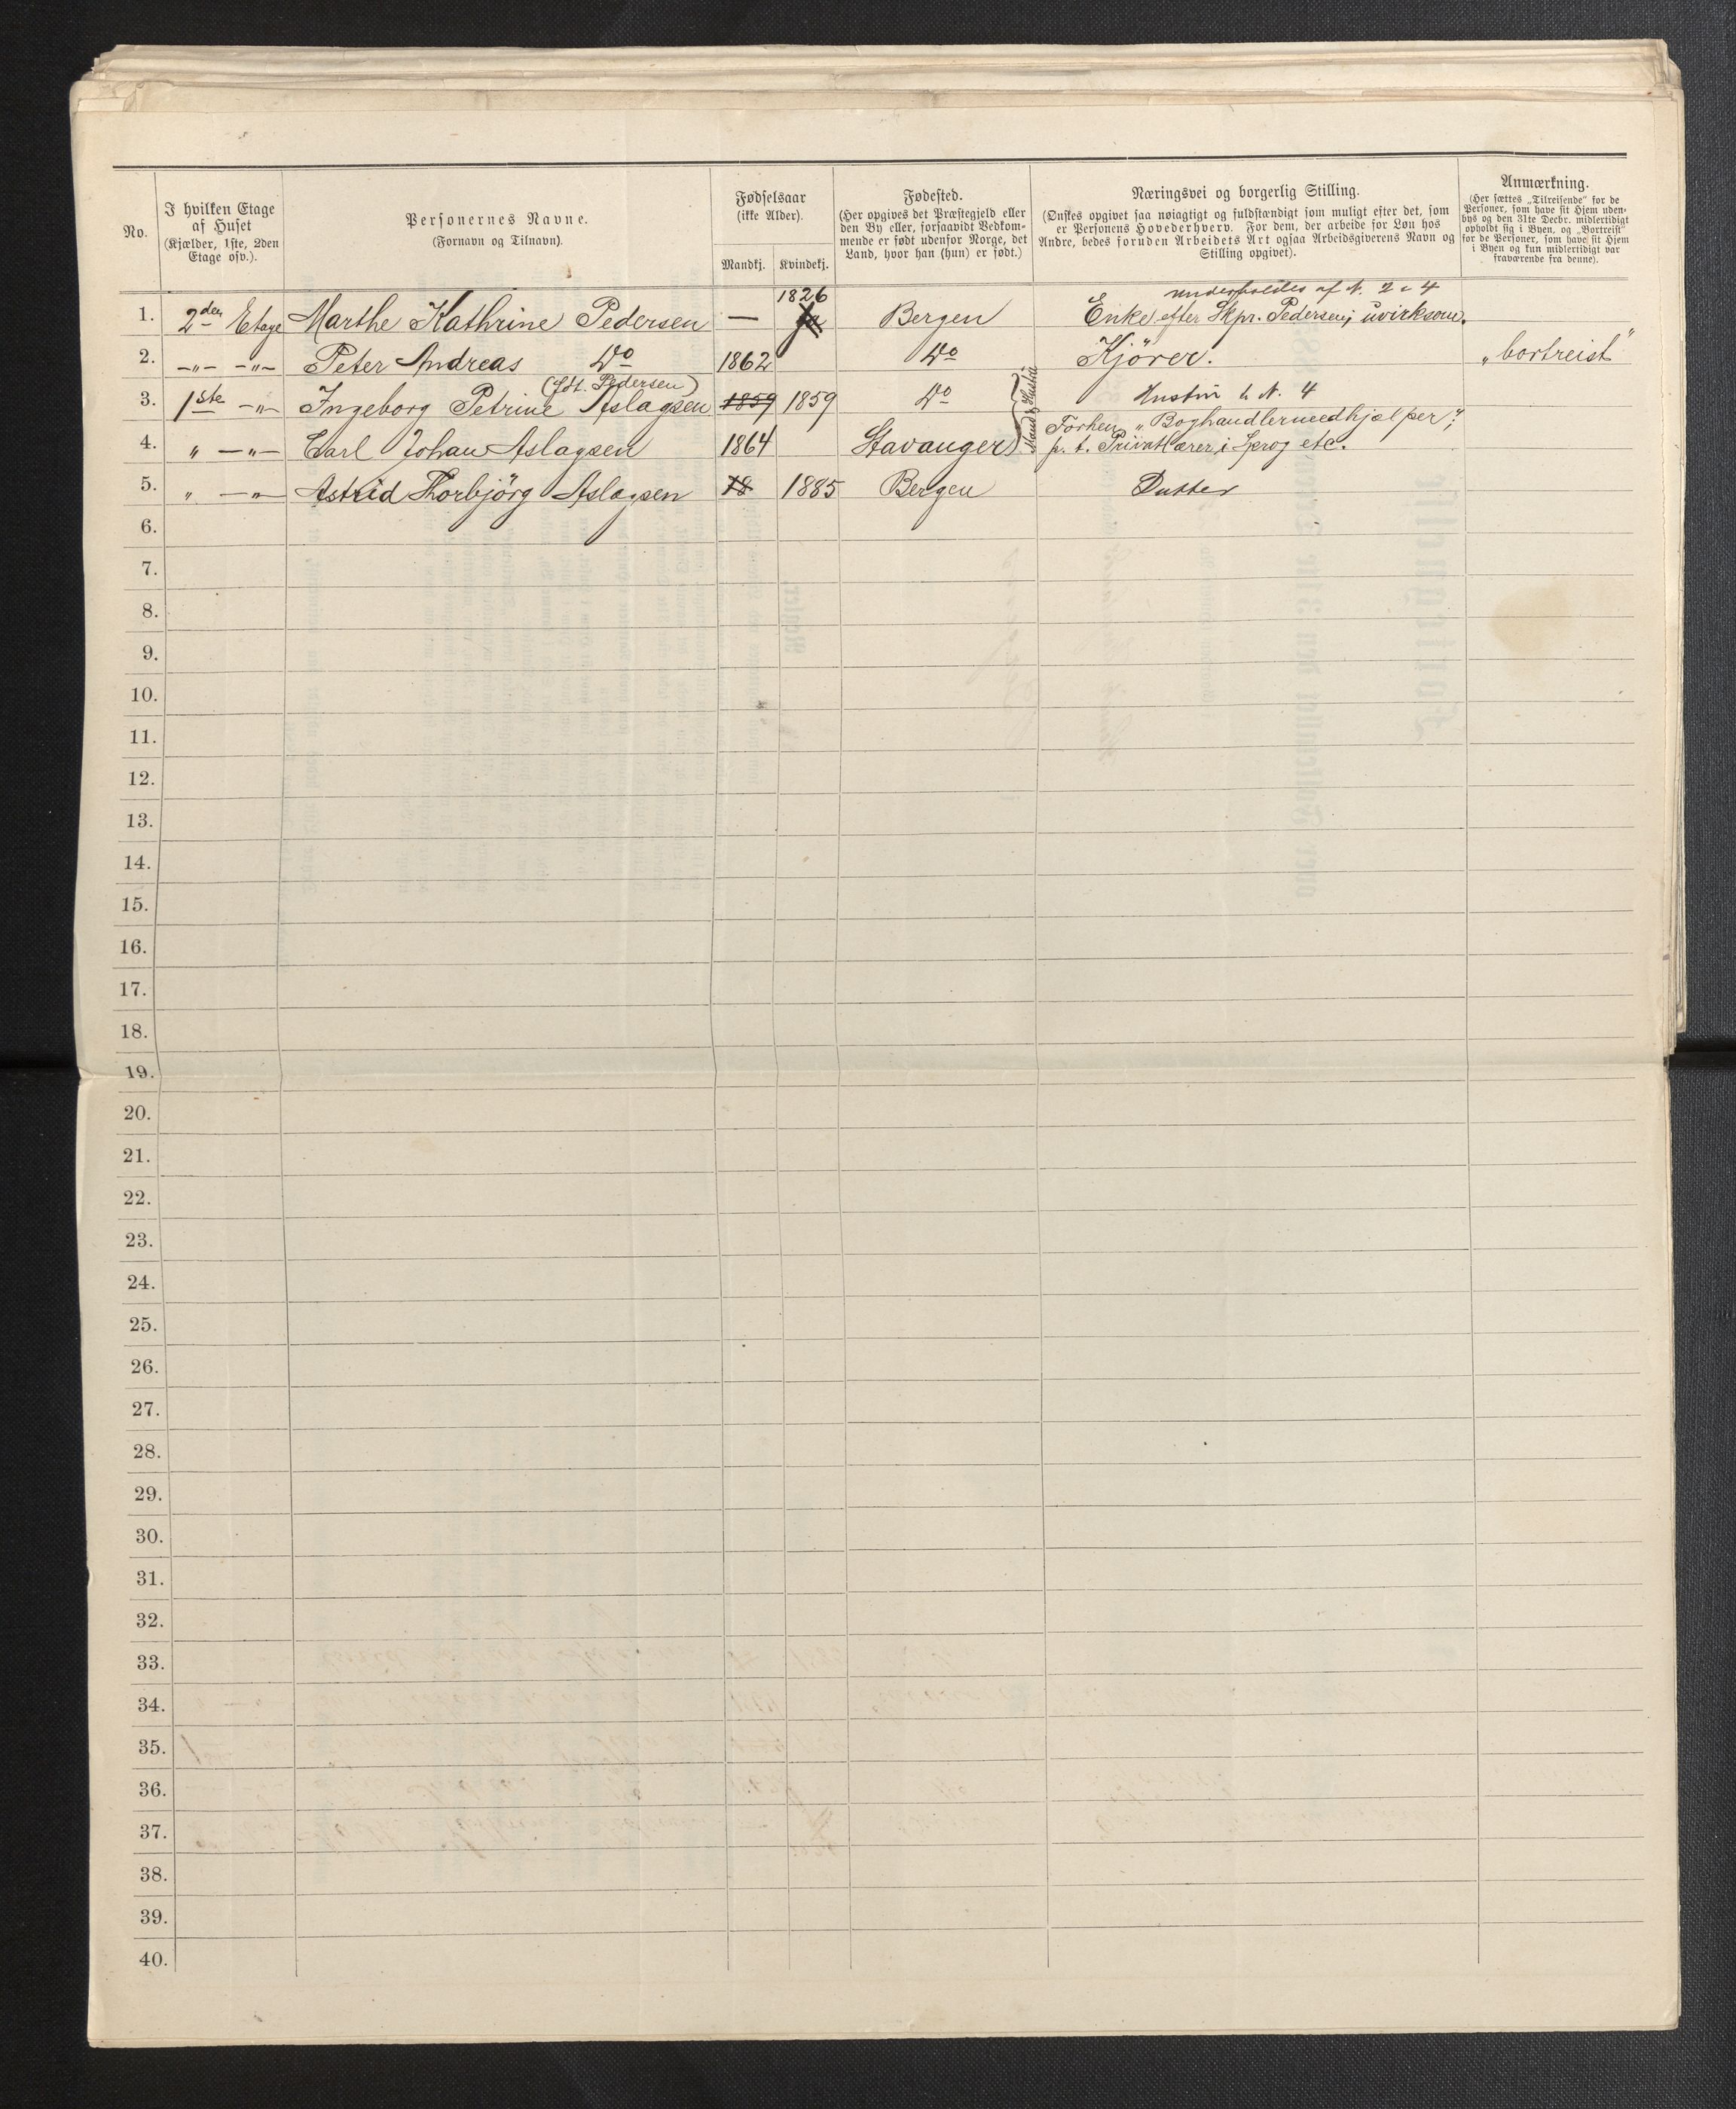 No.
I hvilken Etage
af Huset
(Kjælder, 1ste, 2den
Etage osv.).
Personernes Navne.
(Fornavn og Tilnavn).
Fødselsaar
(ikke Alder).
Mandkj. Kvindekj.
Fødested.
(Her opgives det Præstegjeld eller
den By eller, forsaavidt Vedkom-
mende er født udenfor Norge, det
Land, hvor han (hun) er født.)
Næringsvei og borgerlig Stilling.
(Ønskes opgivet saa nøiagtigt og fuldstændigt som muligt efter det, som
er Personens Hovederhverv. For dem, der arbeide for Løn hos
Andre, bedes foruden Arbeidets Art ogsaa Arbeidsgiverens Navn og
Stilling opgivet).
Anmærkning.
(Her sættes „Tilreisende" for de
Personer, som have sit Hjem uden-
bys og den 31te Decbr. midlertidigt
opholdt sig i Byen, og „Bortreist"
for de Personer, som have sit Hjem
i Byen og kun midlertidigt var
fraværende fra denne).
1826 underholdes af N. 2 & 4
1. 2den Etage Marthe Kathrine Pedersen — ja Bergen Enke efter Skpr. Pedersen; uvirksom.
2. —„— —„— Peter Andreas Do 1862 Do Kjörer. „bortreist"
(fdt. Pedersen)
3. 1ste —„— Ingeborg Petrine Aslagsen 1859 1859 Do Hustru t. N. 4
Mand & Hustru
Forhen „Boghandlermedhjælper";
4. „ —„— Carl Johan Aslagsen 1864 Stavanger p. t. Privatlærer i Sprog etc.
5. „ —„— Astrid Thorbjörg Aslagsen 18 1885 Bergen Datter
6.
7.
8.
9.
10.
11.
12.
13.
14.
15.
16.
17.
18.
19.
20.
21.
22.
23.
24.
25.
26.
27.
28.
29.
30.
31.
32.
33.
34.
35.
36.
37.
38.
39.
40.